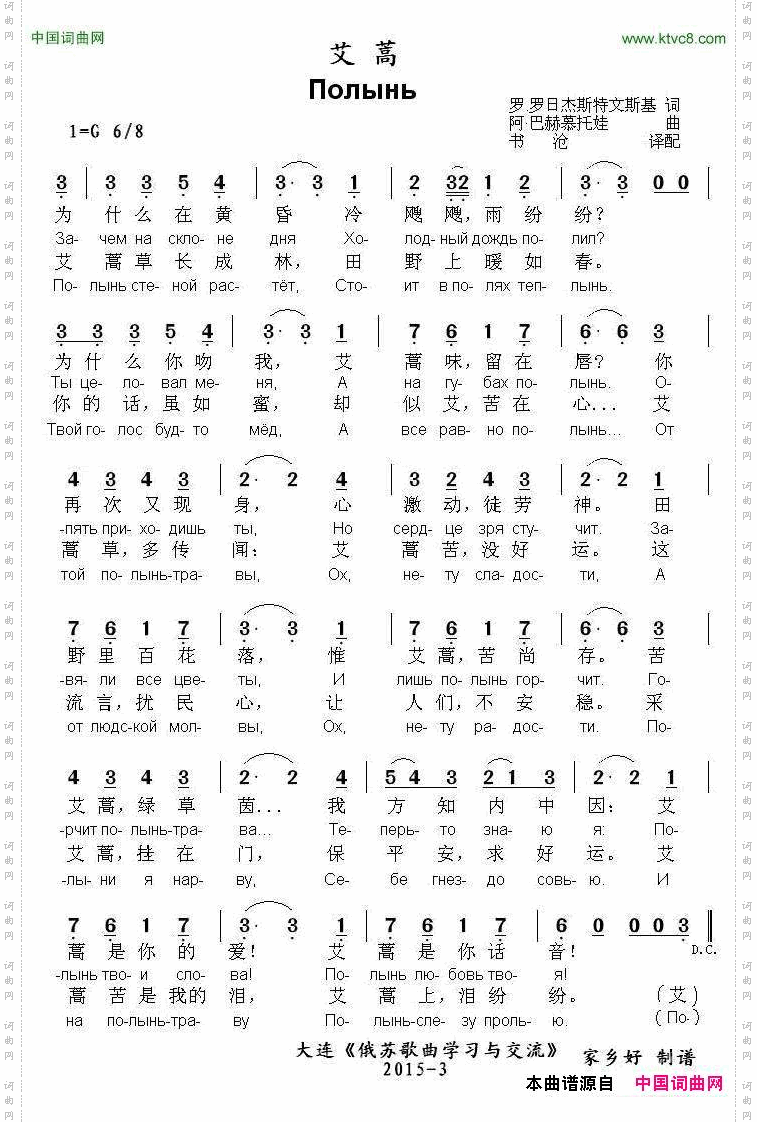 中国词曲网
www.ktvc8.com
艾 蒿
Полынь
罗·罗日杰斯特文斯基 词
1=G 6/8
阿·巴赫慕托娃 曲
书 沧 译配
3 | 3 3 5 4 | 3· 3 1 | 2 32 1 2 | 3· 3 0 0 |
为 什 么 在 黄 昏 冷 飕 飕，雨 纷 纷？
За- чем на скло- не дня Хо- лод- ный дождь по- лил?
艾 蒿 草 长 成 林， 田 野 上 暖 如 春。
По- лынь сте- ной рас- тёт, Сто- ит в по- лях теп- лынь.
3 3 3 5 4 | 3· 3 1 | 7 6 1 7 | 6· 6 3 |
为 什 么 你 吻 我， 艾 蒿 味，留 在 唇？ 你
Ты це- ло- вал ме- ня, А на гу- бах по- лынь. О-
你 的 话，虽 如 蜜， 却 似 艾，苦 在 心... 艾
Твой го- лос буд- то мёд, А все рав- но по- лынь... От
4 3 4 3 | 2· 2 4 | 3 2 4 3 | 2· 2 1 |
再 次 又 现 身， 心 激 动，徒 劳 神。 田
-пять при- хо- дишь ты, Но серд- це зря сту- чит. За-
蒿 草，多 传 闻： 艾 蒿 苦，没 好 运。 这
той по- лынь-тра- вы, Ох, не- ту сла- дос- ти, А
7 6 1 7 | 3· 3 1 | 7 6 1 7 | 6· 6 3 |
野 里 百 花 落， 惟 艾 蒿，苦 尚 存。 苦
-вя- ли все цве- ты, И лишь по- лынь гор- чит. Го-
流 言，扰 民 心， 让 人 们，不 安 稳。 采
от людс- кой мол- вы, Ох, не- ту ра- дос- ти. По-
4 3 4 3 | 2· 2 4 | 5 4 3 2 1 3 | 2· 2 1 |
艾 蒿，绿 草 茵... 我 方 知 内 中 因： 艾
-рчит по- лынь-тра- ва... Те- перь- то зна- ю я: По-
艾 蒿，挂 在 门， 保 平 安，求 好 运。 艾
-лы- ни я нар- ву, Се- бе гнез- до совь- ю. И
7 6 1 7 | 3· 3 1 | 7 6 1 7 | 6 0 0 0 3 ‖
D.C.
蒿 是 你 的 爱！ 艾 蒿 是 你 话 音！
-лынь тво- и сло- ва! По- лынь лю- бовь тво- я!
蒿 苦 是 我的 泪， 艾 蒿 上，泪 纷 纷。 （ 艾 ）
на по- лынь-тра- ву По- лынь-сле- зу проль- ю. ( По- )
大连《俄苏歌曲学习与交流》 家乡好 制谱
2015-3
本曲谱源自 中国词曲网